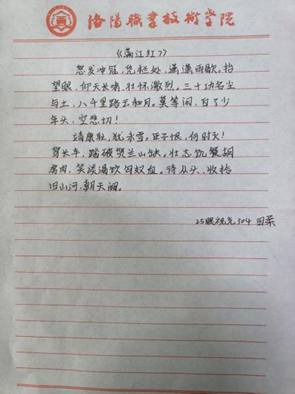 洛阳职业技术学院
《满江红》
怒发冲冠，凭栏处，潇潇雨歇。抬
望眼，仰天长啸，壮怀激烈。三十功名尘
与土，八千里路云和月。莫等闲，白了少
年头，空悲切！
靖康耻，犹未雪。臣子恨，何时灭！
驾长车，踏破贺兰山缺。壮志饥餐胡
虏肉，笑谈渴饮匈奴血。待从头、收拾
旧山河，朝天阙。
25眼视光304